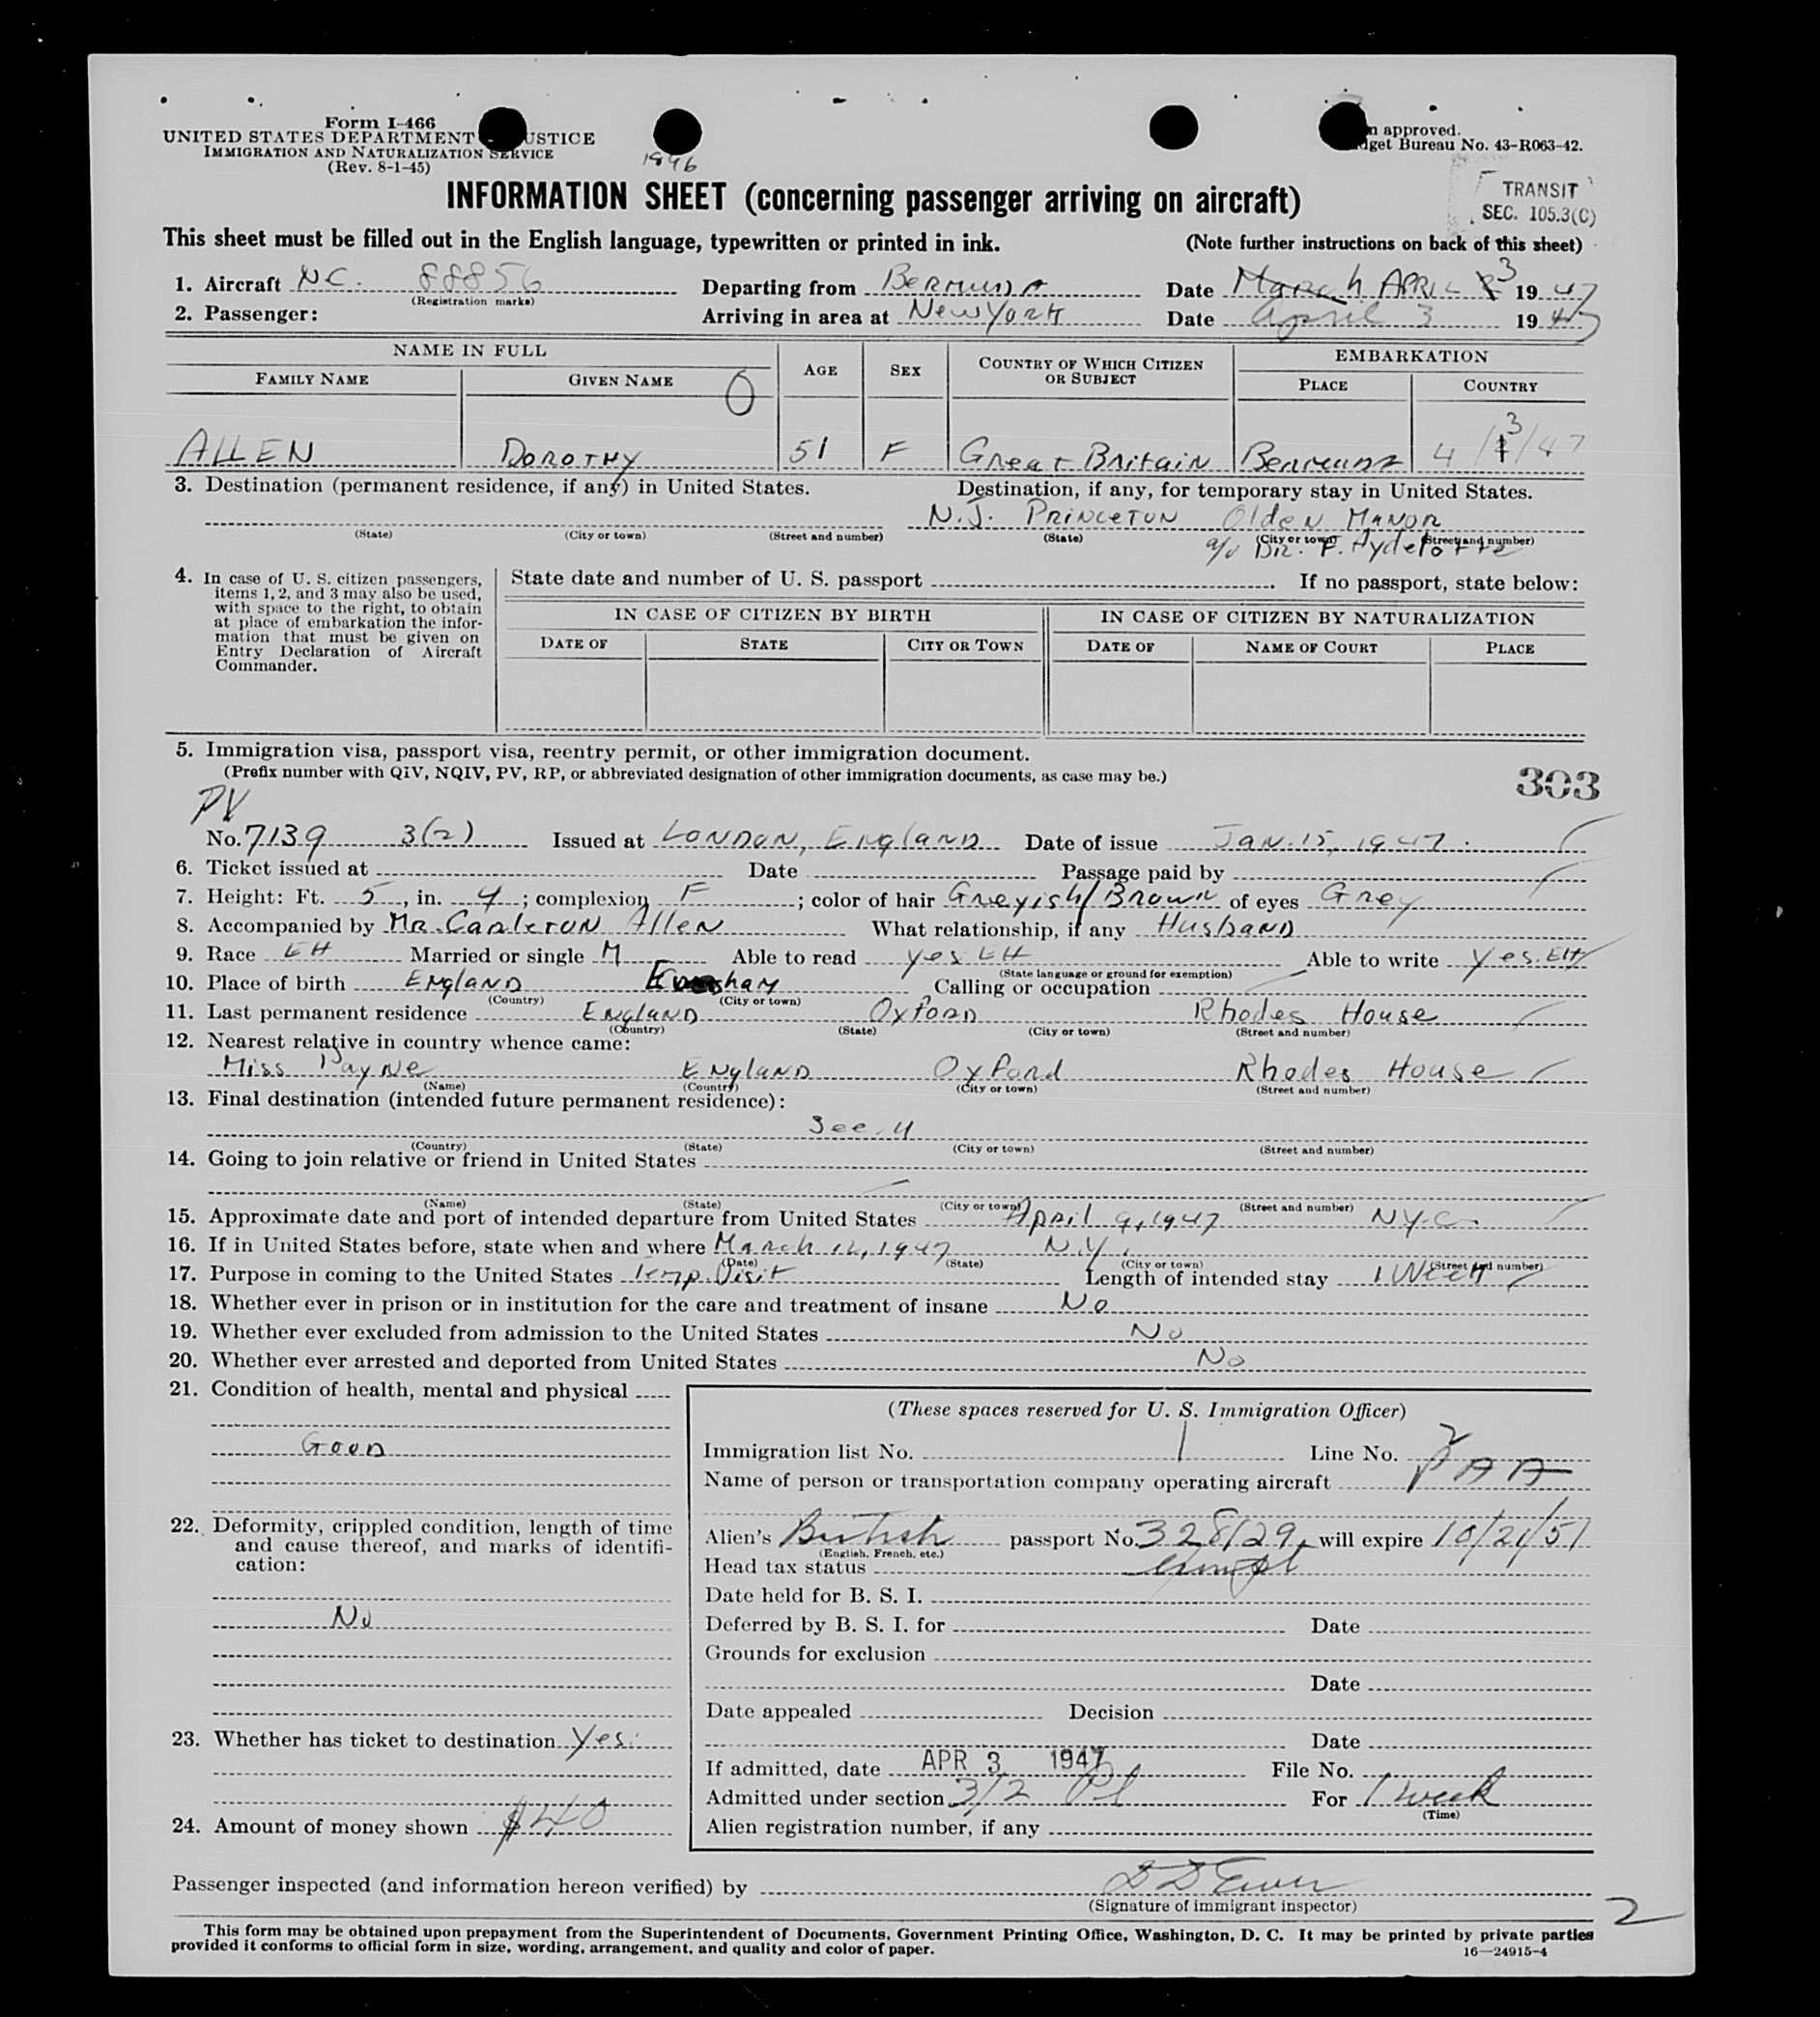 Form I-466
UNITED STATES DEPARTMENT JUSTICE
IMMIGRATION AND NATURALIZATION SERVICE
(Rev. 8-1-45)
1946
approved.
get Bureau No. 43-R063-42.
TRANSIT
SEC. 105.3(C)
INFORMATION SHEET (concerning passenger arriving on aircraft)
This sheet must be filled out in the English language, typewritten or printed in ink. (Note further instructions on back of this sheet)
1. Aircraft NC. 88856 Departing from BERMUDA Date March APRIL 3 1947
(Registration marks)
2. Passenger: Arriving in area at New York Date April 3 1947
NAME IN FULL AGE SEX COUNTRY OF WHICH CITIZEN OR SUBJECT EMBARKATION
FAMILY NAME GIVEN NAME PLACE COUNTRY
ALLEN DOROTHY 51 F Great Britain Bermuda 4/3/47
3. Destination (permanent residence, if any) in United States. Destination, if any, for temporary stay in United States.
N.J. PRINCETON Olden Manor
(State) (City or town) (Street and number) (State) (City or town) (Street and number)
Dr. F. Aydelotte
4. In case of U. S. citizen passengers, items 1, 2, and 3 may also be used, with space to the right, to obtain at place of embarkation the information that must be given on Entry Declaration of Aircraft Commander.
State date and number of U. S. passport If no passport, state below:
IN CASE OF CITIZEN BY BIRTH IN CASE OF CITIZEN BY NATURALIZATION
DATE OF STATE CITY OR TOWN DATE OF NAME OF COURT PLACE
5. Immigration visa, passport visa, reentry permit, or other immigration document.
(Prefix number with QIV, NQIV, PV, RP, or abbreviated designation of other immigration documents, as case may be.)
303
PV
No. 7139 3(2) Issued at LONDON, ENGLAND Date of issue JAN. 15, 1947.
6. Ticket issued at Date Passage paid by
7. Height: Ft. 5, in. 4; complexion F; color of hair Greyish/Brown of eyes Grey
8. Accompanied by Mr. Carleton Allen What relationship, if any Husband
9. Race EH Married or single M Able to read yes EH Able to write Yes. EH
(State language or ground for exemption)
10. Place of birth ENGLAND Evesham Calling or occupation
(Country) (City or town)
11. Last permanent residence ENGLAND Oxford Rhodes House
(Country) (State) (City or town) (Street and number)
12. Nearest relative in country whence came:
Miss Payne ENGLAND Oxford Rhodes House
(Name) (Country) (City or town) (Street and number)
13. Final destination (intended future permanent residence):
See. 11
(Country) (State) (City or town) (Street and number)
14. Going to join relative or friend in United States
(Name) (State) (City or town) (Street and number)
15. Approximate date and port of intended departure from United States April 9, 1947 N.Y.C.
16. If in United States before, state when and where March 12, 1947 N.Y.
(Date) (State) (City or town) (Street and number)
17. Purpose in coming to the United States Temp. Visit Length of intended stay 1 Week
18. Whether ever in prison or in institution for the care and treatment of insane No
19. Whether ever excluded from admission to the United States No
20. Whether ever arrested and deported from United States No
21. Condition of health, mental and physical
Good
22. Deformity, crippled condition, length of time and cause thereof, and marks of identification:
No
23. Whether has ticket to destination Yes.
24. Amount of money shown $40
(These spaces reserved for U. S. Immigration Officer)
Immigration list No. 1 Line No. 2
Name of person or transportation company operating aircraft PAA
Alien's British passport No. 328129, will expire 10/21/51
(English, French, etc.)
Head tax status exempt
Date held for B. S. I.
Deferred by B. S. I. for Date
Grounds for exclusion
Date
Date appealed Decision
Date
If admitted, date APR 3 1947 File No.
Admitted under section 3/2 For 1 week
(Time)
Alien registration number, if any
Passenger inspected (and information hereon verified) by
(Signature of immigrant inspector)
2
This form may be obtained upon prepayment from the Superintendent of Documents, Government Printing Office, Washington, D. C. It may be printed by private parties
provided it conforms to official form in size, wording, arrangement, and quality and color of paper. 16—24915-4